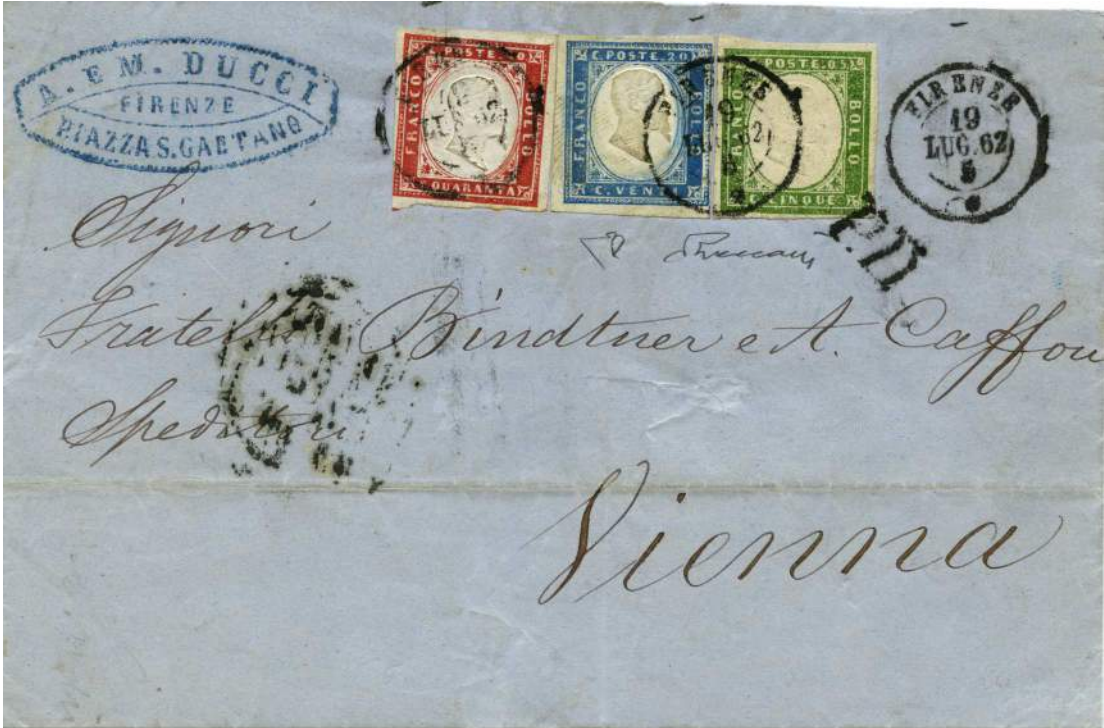 A. E M. DUCCI
FIRENZE
PIAZZA S. GAETANO
C. POSTE. 40
FRANCO
BOLLO
QUARANTA
C. POSTE. 20
FRANCO
BOLLO
C. VENTI
C. POSTE. 05
FRANCO
BOLLO
C. CINQUE
FIRENZE
19
LUG. 62
FIRENZE
19
LUG. 62
5
P.D.
Signori
Fratelli Bindtner e A. Caffou
Speditori
Vienna